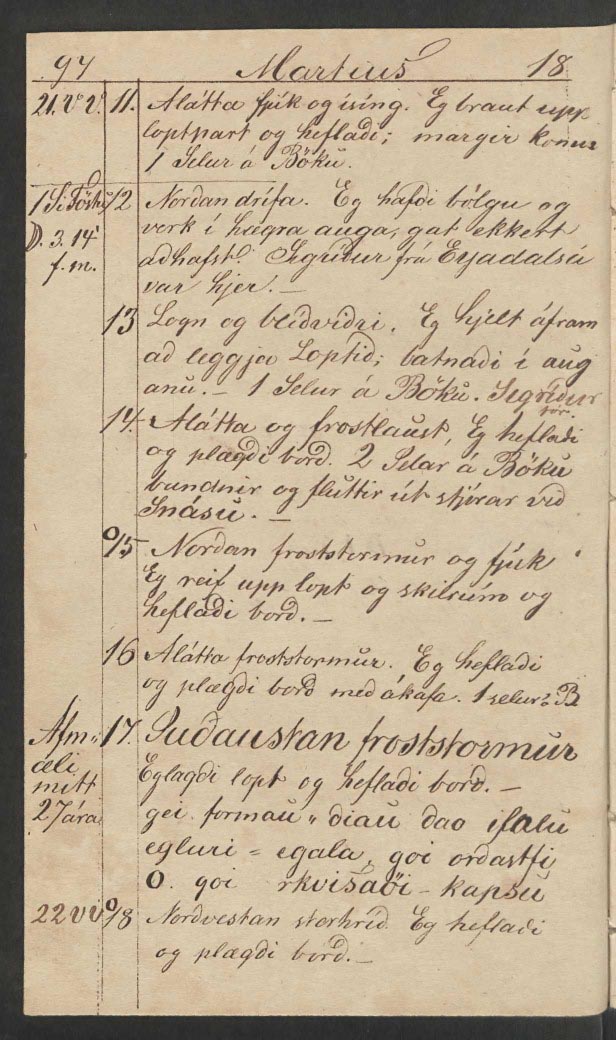 94 Martius 18
21. v v. 11. Alátta fjúk og ísing. Eg braut upp
loptpart og heflaði; margir komu
1 Selur á Böku.
1 Si Föstu 12 Norðan drífa. Eg hafði bólgu og
D. 3. 14' verk í hægra auga, gat ekkert
f. m. aðhafst. Sigríður frá Eyadalsá
var hjer. —
13 Logn og blíðviðri. Eg hjelt áfram
að leggja Loptið; batnaði í aug
anu. — 1 Selur á Böku. Sigríður
fór.
14. Alátta og frostlaust, Eg heflaði
og plægði borð. 2 Selar á Böku
bundnir og fluttir út stjórar við
Snásu. —
15 Norðan froststormur og fjúk
Eg reif upp lopt og skilrúm og
heflaði borð. —
16 Alátta froststormur. Eg heflaði
og plægði borð með ákafa. 1 selur á B
Afm„ 17. Suðaustan froststormur
æli Eg lagði lopt og heflaði borð. —
mitt
27 ára gei formau „ diau dao ifalu
egluri = egala, goi orðastfi
O. goi rkvisaöi – kapsu
22 v v 18 Norðvestan störhríð. Eg heflaði
og plægði borð. —